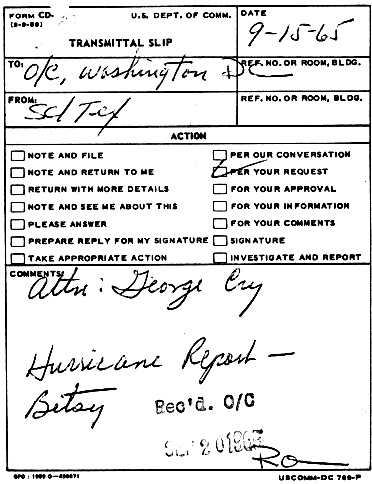 FORM CD-
U.S. DEPT. OF COMM.
DATE
TRANSMITTAL SLIP
9-15-65
TO:
O/C, Washington DC
REF. NO. OR ROOM, BLDG.
FROM:
REF. NO. OR ROOM, BLDG.
ACTION
NOTE AND FILE
PER OUR CONVERSATION
NOTE AND RETURN TO ME
PER YOUR REQUEST
RETURN WITH MORE DETAILS
FOR YOUR APPROVAL
NOTE AND SEE ME ABOUT THIS
FOR YOUR INFORMATION
PLEASE ANSWER
FOR YOUR COMMENTS
PREPARE REPLY FOR MY SIGNATURE
SIGNATURE
TAKE APPROPRIATE ACTION
INVESTIGATE AND REPORT
COMMENTS:
Attn: George Cry
Hurricane Report —
Betsy
Rec'd. O/C
SEP 20 1965
USCOMM-DC